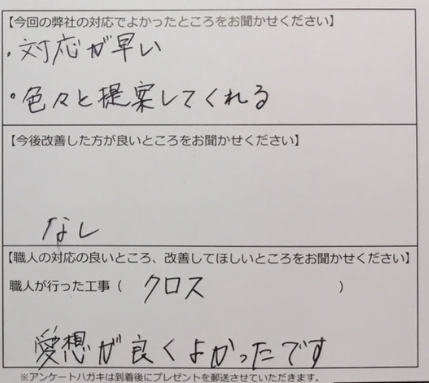 【今回の弊社の対応でよかったところをお聞かせください】
・対応が早い
・色々と提案してくれる
【今後改善した方が良いところをお聞かせください】
なし
【職人の対応の良いところ、改善してほしいところをお聞かせください】
職人が行った工事（ クロス ）
愛想が良くよかったです
※アンケートハガキは到着後にプレゼントを郵送させていただきます。